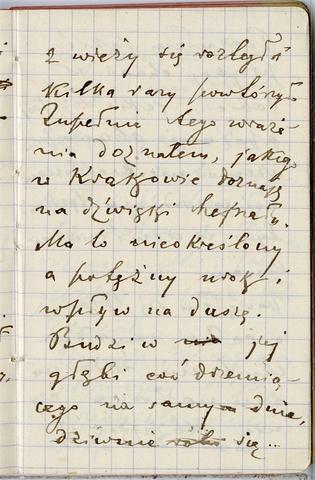 z wieży się rozległ
kilka razy powtórzył
Zupełnie tego wraże
nia doznałem, jakiego
w Krakowie doznaję
na dźwięki hejnału.
Ma to nieokreślony
a potężny urok i
wpływ na duszę.
Budzi w jej
głębi coś drzemią-
cego na samym dnie,
dziwnie się...